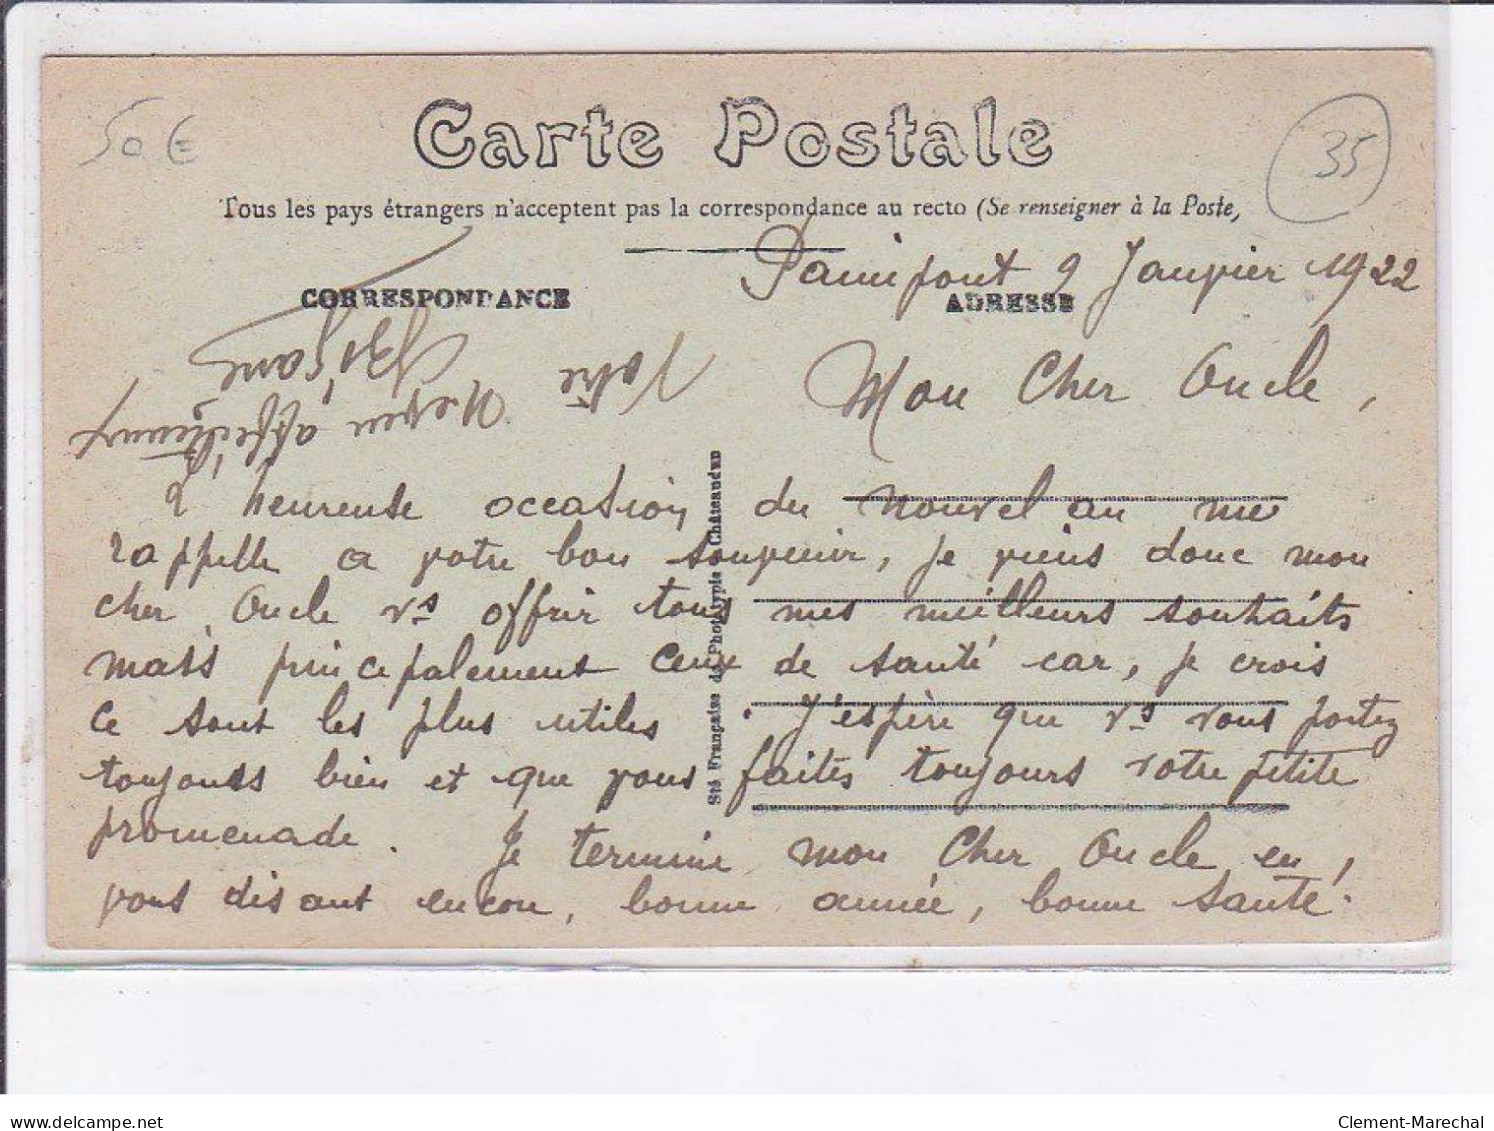 50 €
35
Carte Postale
Tous les pays étrangers n'acceptent pas la correspondance au recto (Se renseigner à la Poste,
Paimpont 9 Janvier 1922
CORRESPONDANCE
ADRESSE
Mon Cher Oncle,
L'heureuse occasion du nouvel an me
rappelle a votre bon souvenir, je viens donc mon
cher Oncle vs offrir tous mes meilleurs souhaits
mais principalement ceux de santé car, je crois
ce sont les plus utiles. J'espère que vs vous portez
toujours bien et que vous faites toujours votre petite
promenade. Je termine mon Cher Oncle en,
vous disant encore, bonne année, bonne santé.
Votre
Neveu affectueux
Sté Française de Phototypie Châteaudun
Clement-Marechal
delcampe.net